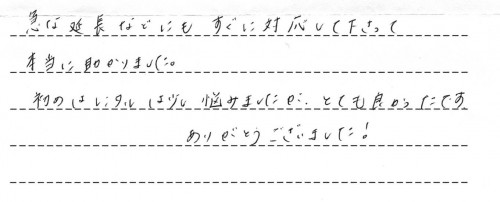 急な延長などにもすぐに対応して下さって
本当に助かりました。
初のはレンタルは少し悩みましたが、とても良かったです
ありがとうございました!